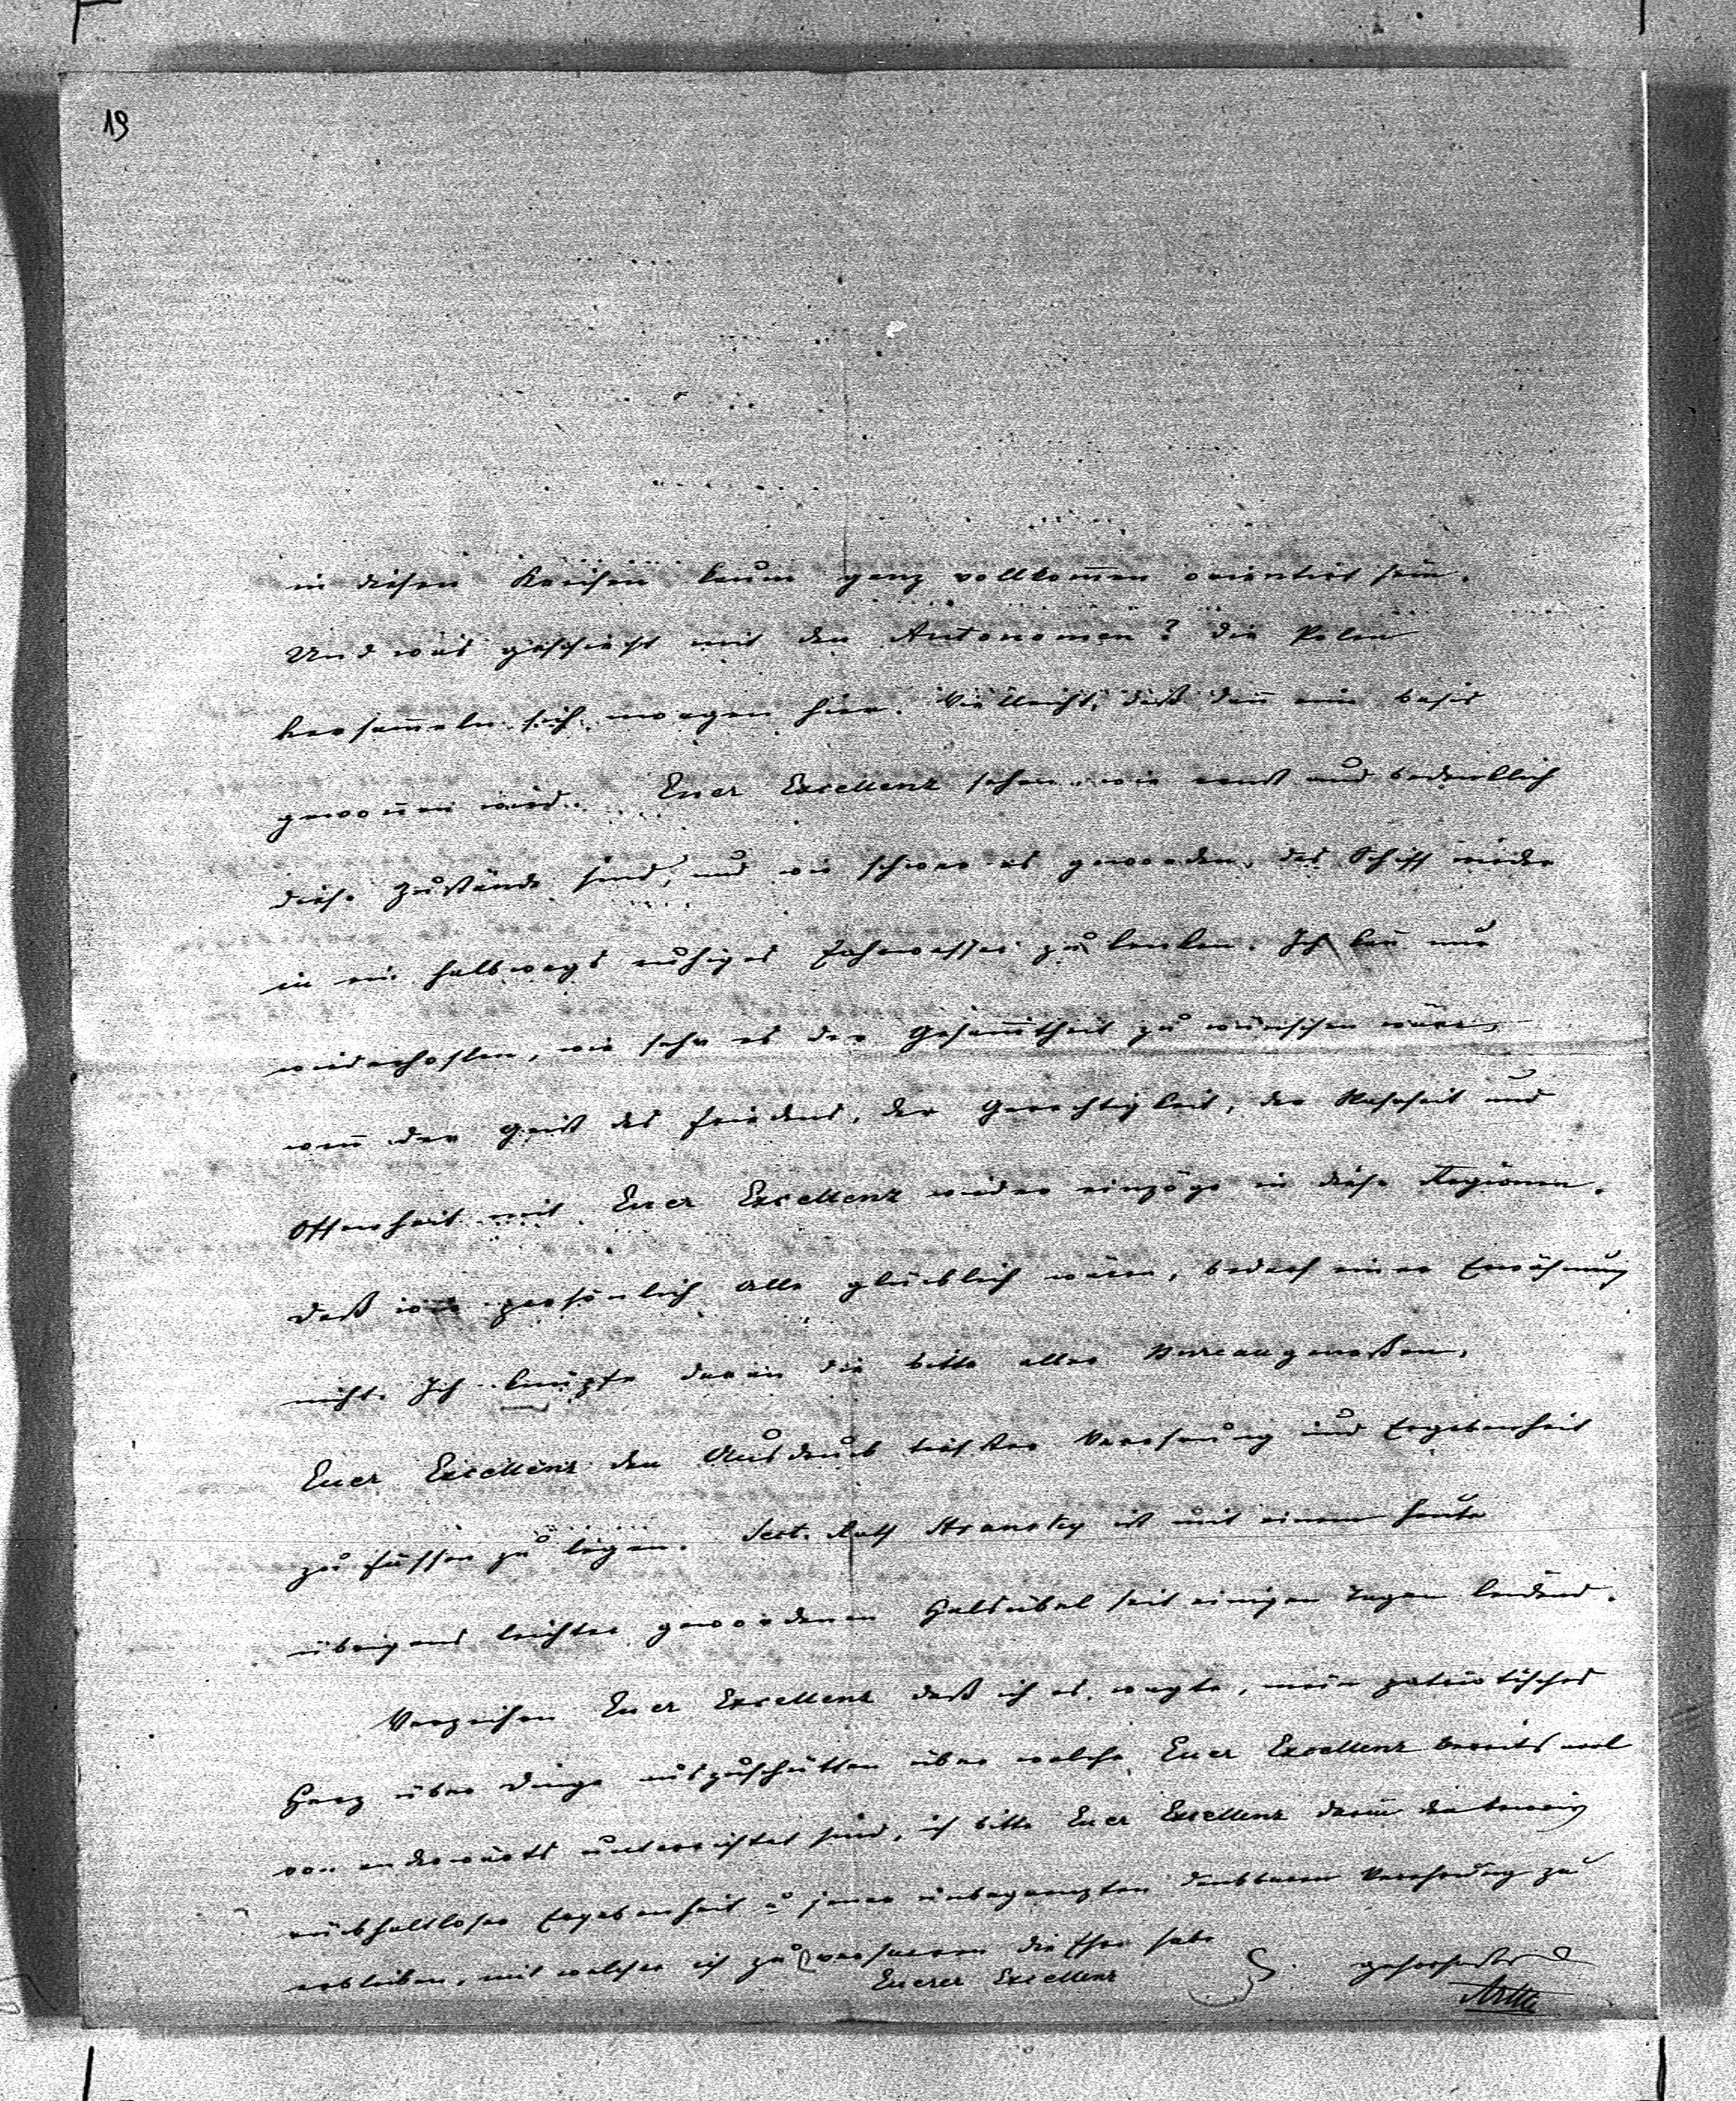 19
in diesen Kreisen kaum ganz vollkom̄en orientirt sein.
Und was geschieht mit den Autonomen? Die Polen
versam̄eln sich morgen hier. Vielleicht, daß dan̄ eine Basis
gewon̄en wird. Euer Excellenz sehen wie ernst und bedenklich
diese Zustände sind, und wie schwer es geworden, das Schiff wieder
in ein halbwegs ruhiges Fahrwasser zu lenken. Ich kan̄ nur
wiederholen, wie sehr es der Gesam̄theit zu wünschen wäre,
wen̄ der Geist des Friedens, der Gerechtigkeit, der Wahrheit und
Offenheit mit Euer Excellenz wieder einzöge in diese Regionen.
Daß wir persönlich alle glücklich wären, bedarf einer Erwähnung
nicht. Ich knüpfe daran die Bitte aller Bureaugenoßen,
Euer Excellenz den Ausdruck tiefster Verehrung und Ergebenheit
zu Füssen zu legen. Sect. Rath Stransky ist mit einem heute
übrigens leichter gewordenen Halsübel seit einigen Tagen leidend.
Verzeihen Euer Excellenz daß ich es wagte, mein patriotisches
Herz über Dinge auszuschütten über welche Euer Excellenz bereits wol
von anderwärts unterrichtet sind, ich bitte Euer Excellenz darin den Beweis
rückhaltloser Ergebenheit u jener unbegrenzten dankbaren Verehrung zu
erblicken, mit welcher ich zu verharren die Ehre habe
Euerer Excellenz gehorsamster